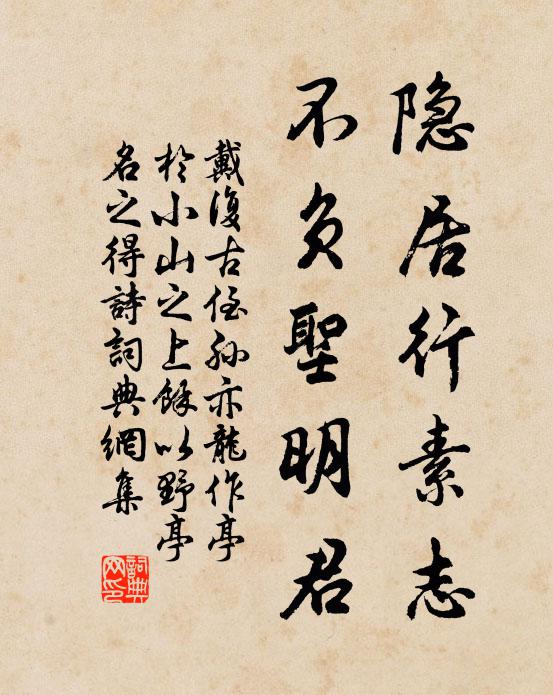 隐居行素志
不负聖明君
戴復古侄孙亦龍作亭
於小山之上餘以野亭
名之得詩詞典網集
詞典网印